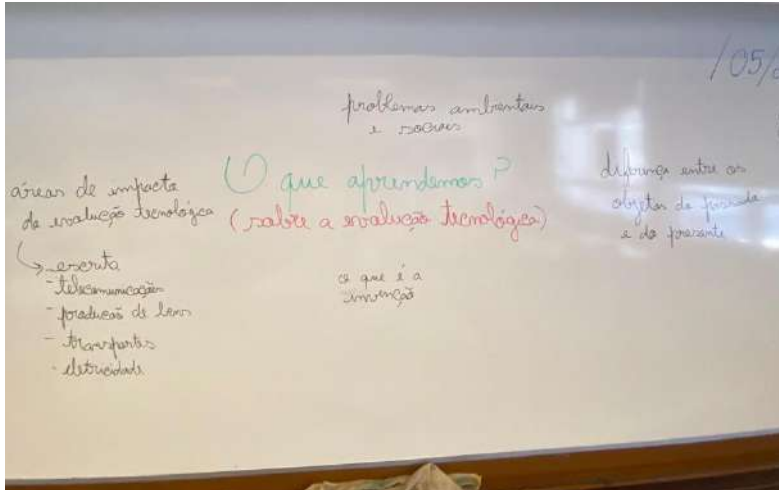 /05/
problemas ambientais
e sociais
O que aprendemos?
(sobre a evolução tecnológica)
áreas de impacto
da evolução tecnológica
escrita
- telecomunicações
- produção de bens
- transportes
- eletricidade
o que é a
invenção
diferença entre os
objetos do passado
e do presente